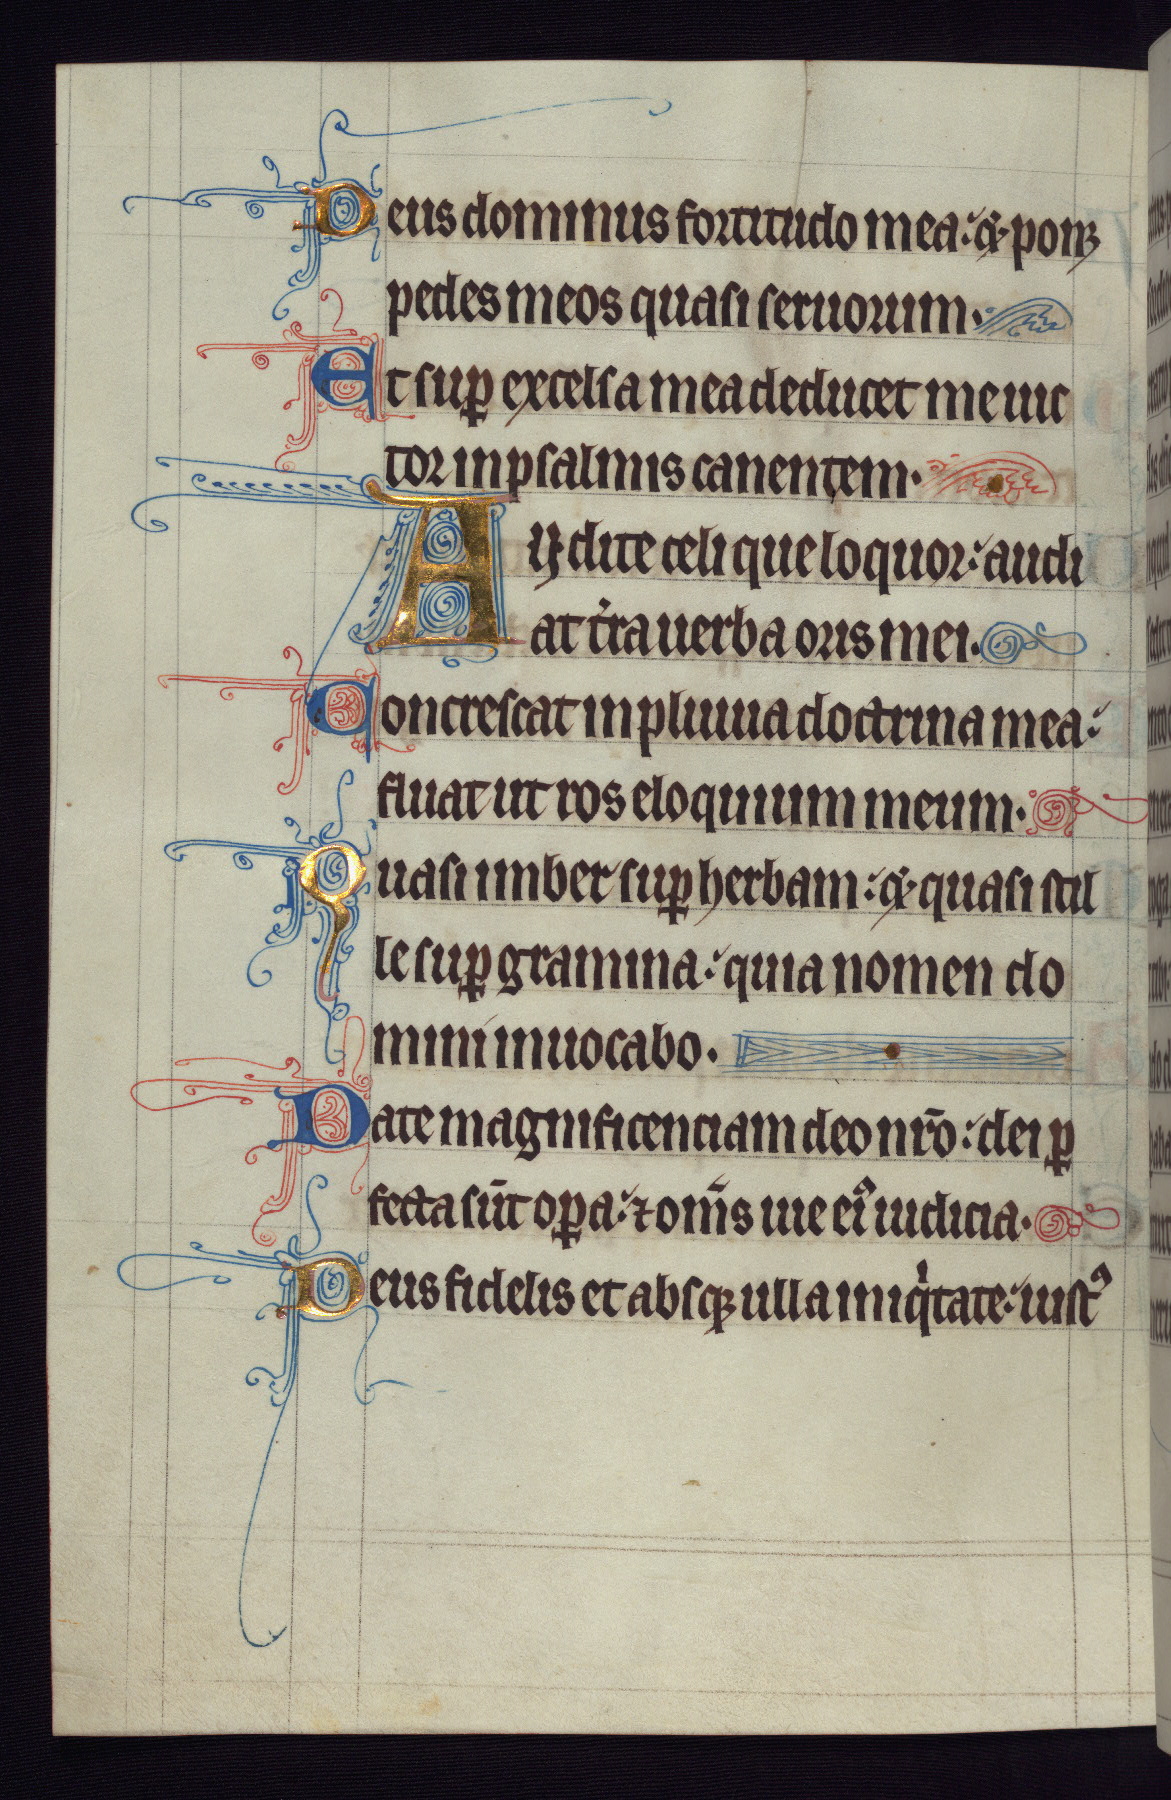 Deus dominus fortitudo mea: & ponꝫ
pedes meos quasi seruorum.
Et suꝑ excelsa mea deducet me uic
tor in psalmis canentem.
Aydite celi que loquor: audi
at tr̃a uerba oris mei.
Concrescat in pluuia doctrina mea:
fluat ut ros eloquium meum.
Quasi imber suꝑ herbam: & quasi stil
le suꝑ gramina: quia nomen do
mini inuocabo.
Date magnificenciam deo nr̃o: dei ꝑ
fecta sũt oꝑa: ⁊ om̃s uie eiꝰ iudicia.
Deus fidelis et absqꝫ ulla iniqͥtate: iustꝰ